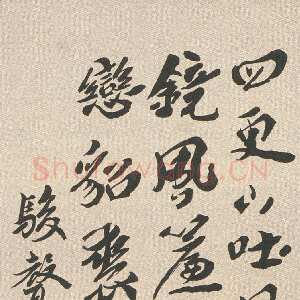 四更山吐月
鏡風簾
戀貂裘
駿聲